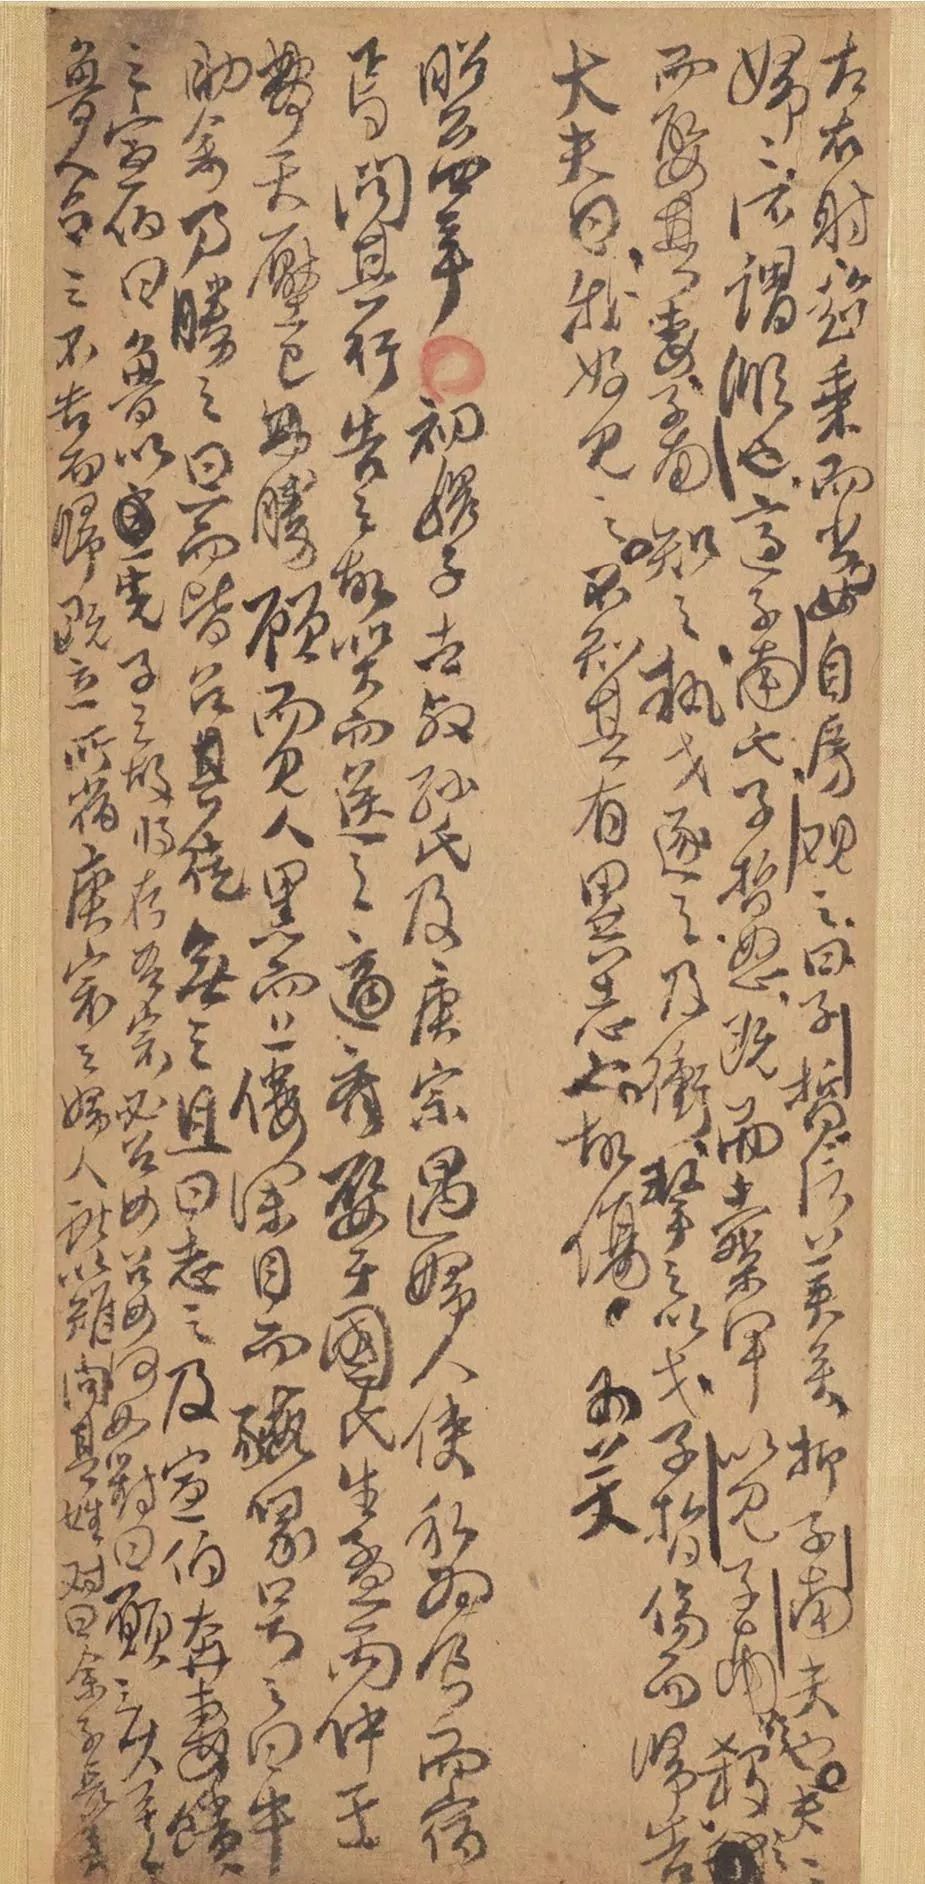 左右射超乘而出女自房观之曰子晳信美矣抑子南夫也夫〻
婦〻所謂順也適子南氏子晳怒既而櫜甲以見子南欲殺之
而娶其妻子南知之執戈逐之及衝擊之以戈子晳傷而歸告
大夫曰我好見之不知其有異志也故傷
昭公四年 初穆子去叔孫氏及庚宗遇婦人使私為食而宿
焉問其行告之故哭而送之適齊娶于國氏生孟丙仲壬
夢天壓己弗勝顧而見人黑而上僂深目而豭喙号之曰牛
助余乃勝之旦而皆召其徒無之且曰志之及宣伯奔齊饋
之宣伯曰魯以先子之故將存吾宗必召女召女何如對曰願之久矣
魯人召之不告而歸既立所宿庚宗之婦人獻以雉問其姓对曰余子長矣